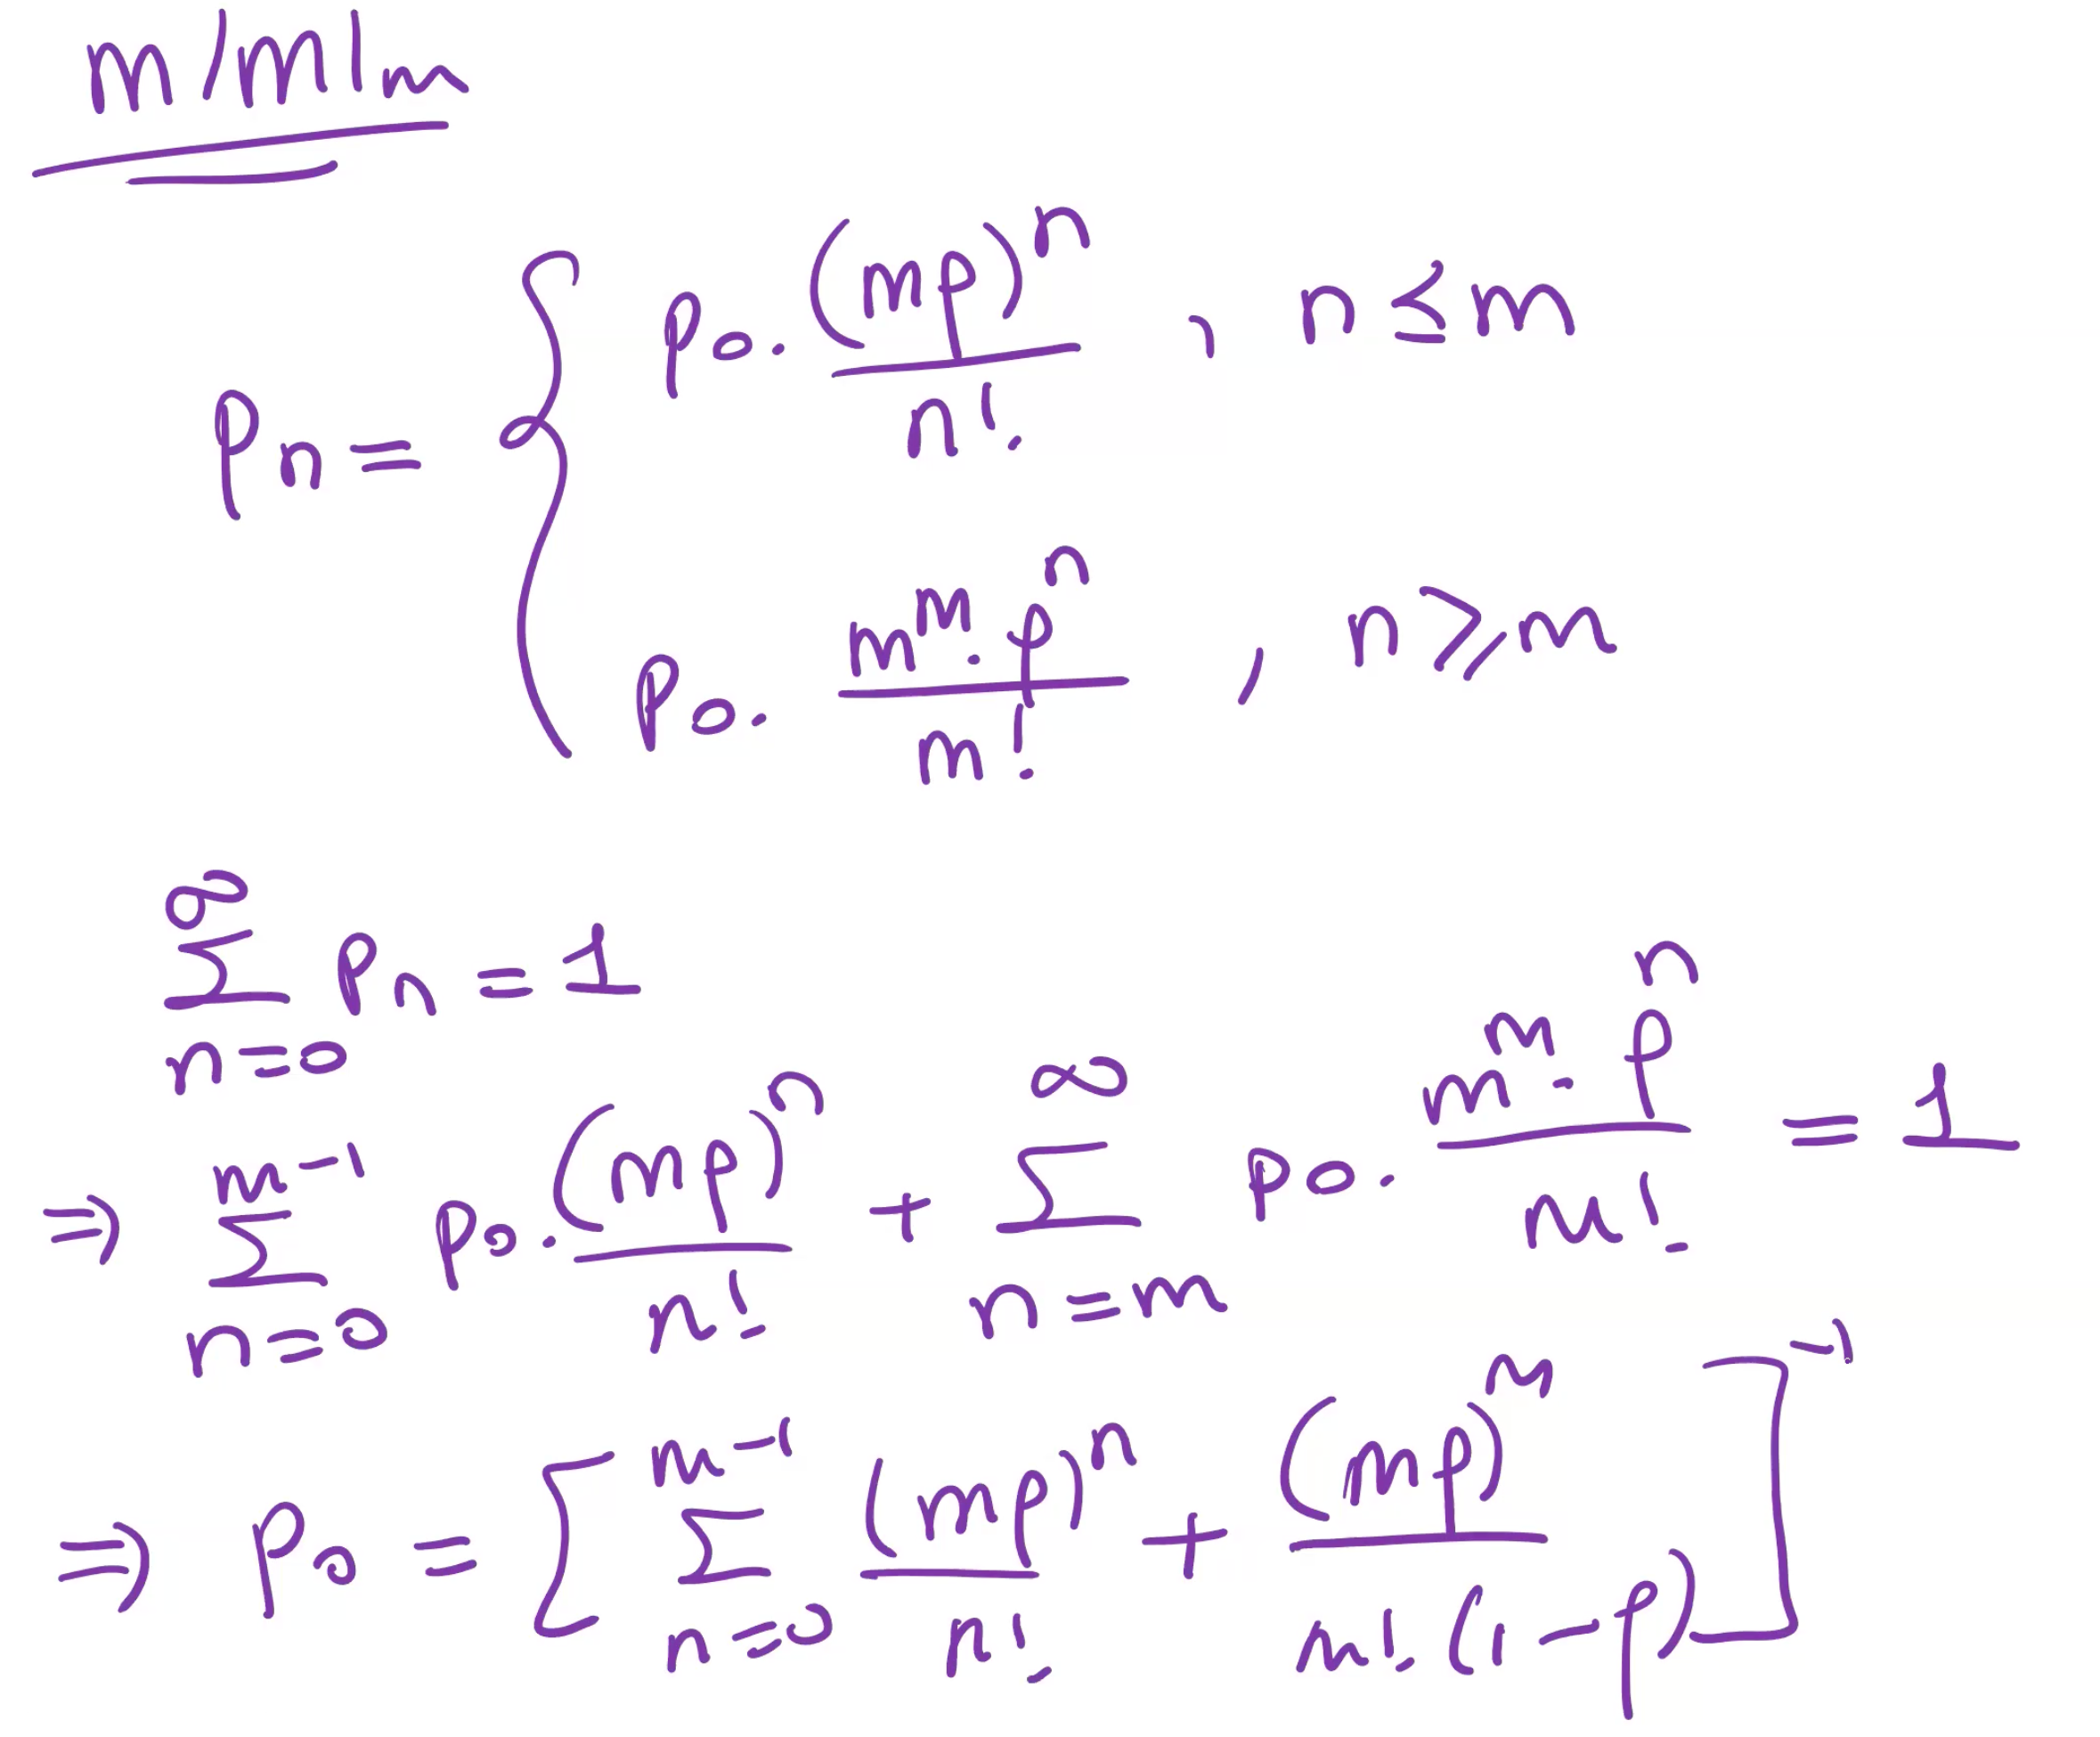 M/M/m
p_n = { p_0 · (mρ)^n / n! , n ≤ m
p_0 · m^m · ρ^n / m! , n ≥ m
∑_{n=0}^{∞} p_n = 1
⇒ ∑_{n=0}^{m-1} p_0 · (mρ)^n / n! + ∑_{n=m}^{∞} p_0 · m^m · ρ^n / m! = 1
⇒ p_0 = [ ∑_{n=0}^{m-1} (mρ)^n / n! + (mρ)^m / m! (1-ρ) ]^{-1}